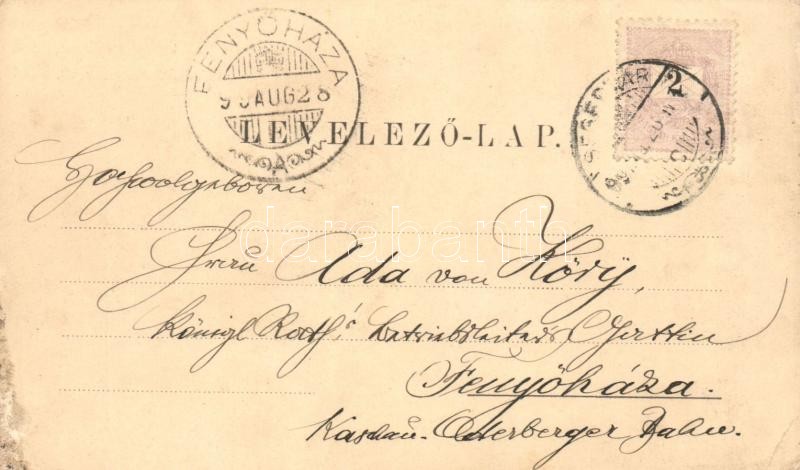 FENYŐHÁZA
99 AUG 28
2
LEVELEZŐ-LAP.
Hochwolgeboren
Frau Ada von Ködy,
Königl Rath's Betriebsleiters Gattin
Fenyőháza.
Kaschau-Oderberger Bahn.
darabanth